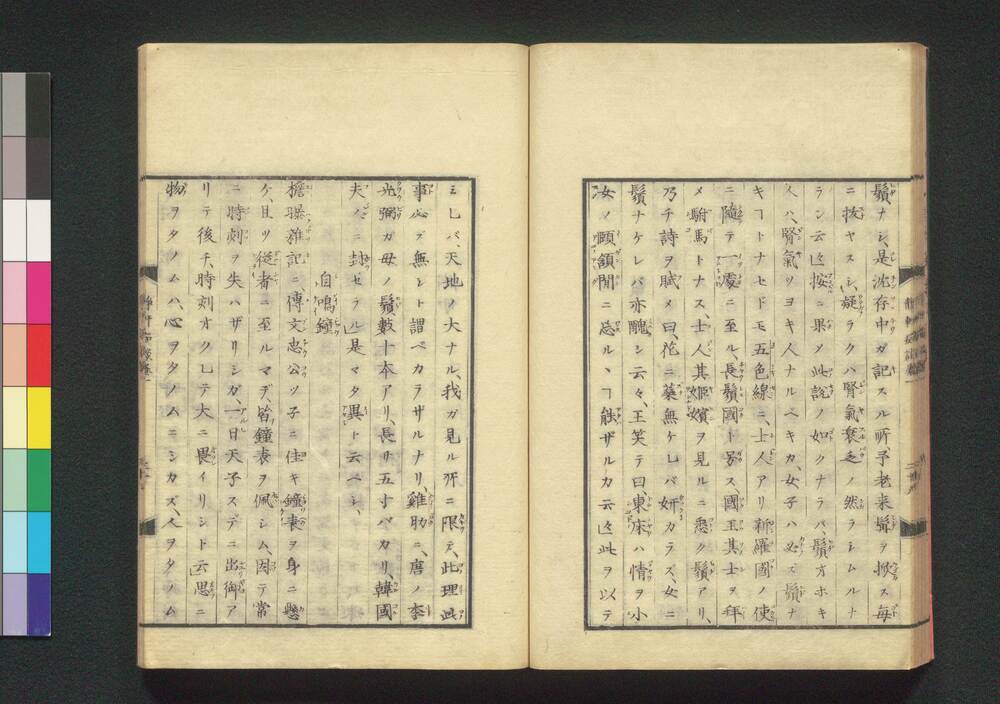 鬚ナシ、是沈存中ガ記スル所予老来髯ヲ掀ス毎
ニ抜ヤスシ、疑ラクハ腎氣衰乏ノ然ラシムルナ
ラン云〻按ニ果メ此説ノ如クナラバ鬚オホキ
人ハ、腎氣ツヨキ人ナルベキカ、女子ハ必ズ鬚ナ
キヿトナセドモ五色線ニ、士人アリ新羅國ノ使
ニ隨テ一處ニ至ル、長鬚國ト号ス國王其士ヲ拜
メ駙馬トナス、士人其姬嬪ヲ見ルニ悉ク鬚アリ、
乃チ詩ヲ賦メ曰、花ニ蘂無ケレバ妍カラズ、女ニ
鬚ナケレバ亦醜シ云々、王笑テ曰、東床ハ情ヲ小
女ノ頤頷間ニ忘ル丶ヿ能ザルカ云〻此ヲ以テ
ミレバ、天地ノ大ナル、我ガ見ル所ニ限テ、此理此
事必ズ無シト謂ベカラザルナリ、雞助ニ、唐ノ李
光弼ガ母ノ鬚、數十本アリ、長リ五寸バカリ、韓國
夫人ニ封ゼラル」是マタ異ト云ベシ、
自鳴鐘
檐曝雜記ニ、傳文忠公ツ子ニ佳キ鐘表ヲ身ニ懸
ケ、且ツ從者ニ至ルマデ、皆鐘表ヲ佩シム、因テ常
ニ時刻ヲ失ハザリシガ、一日天子スデニ出御ア
リテ後チ、時刻オクレテ大ニ畏イリシト云」思ニ
物ヲタノムハ、心ヲタノムニシカズ、人ヲタノム